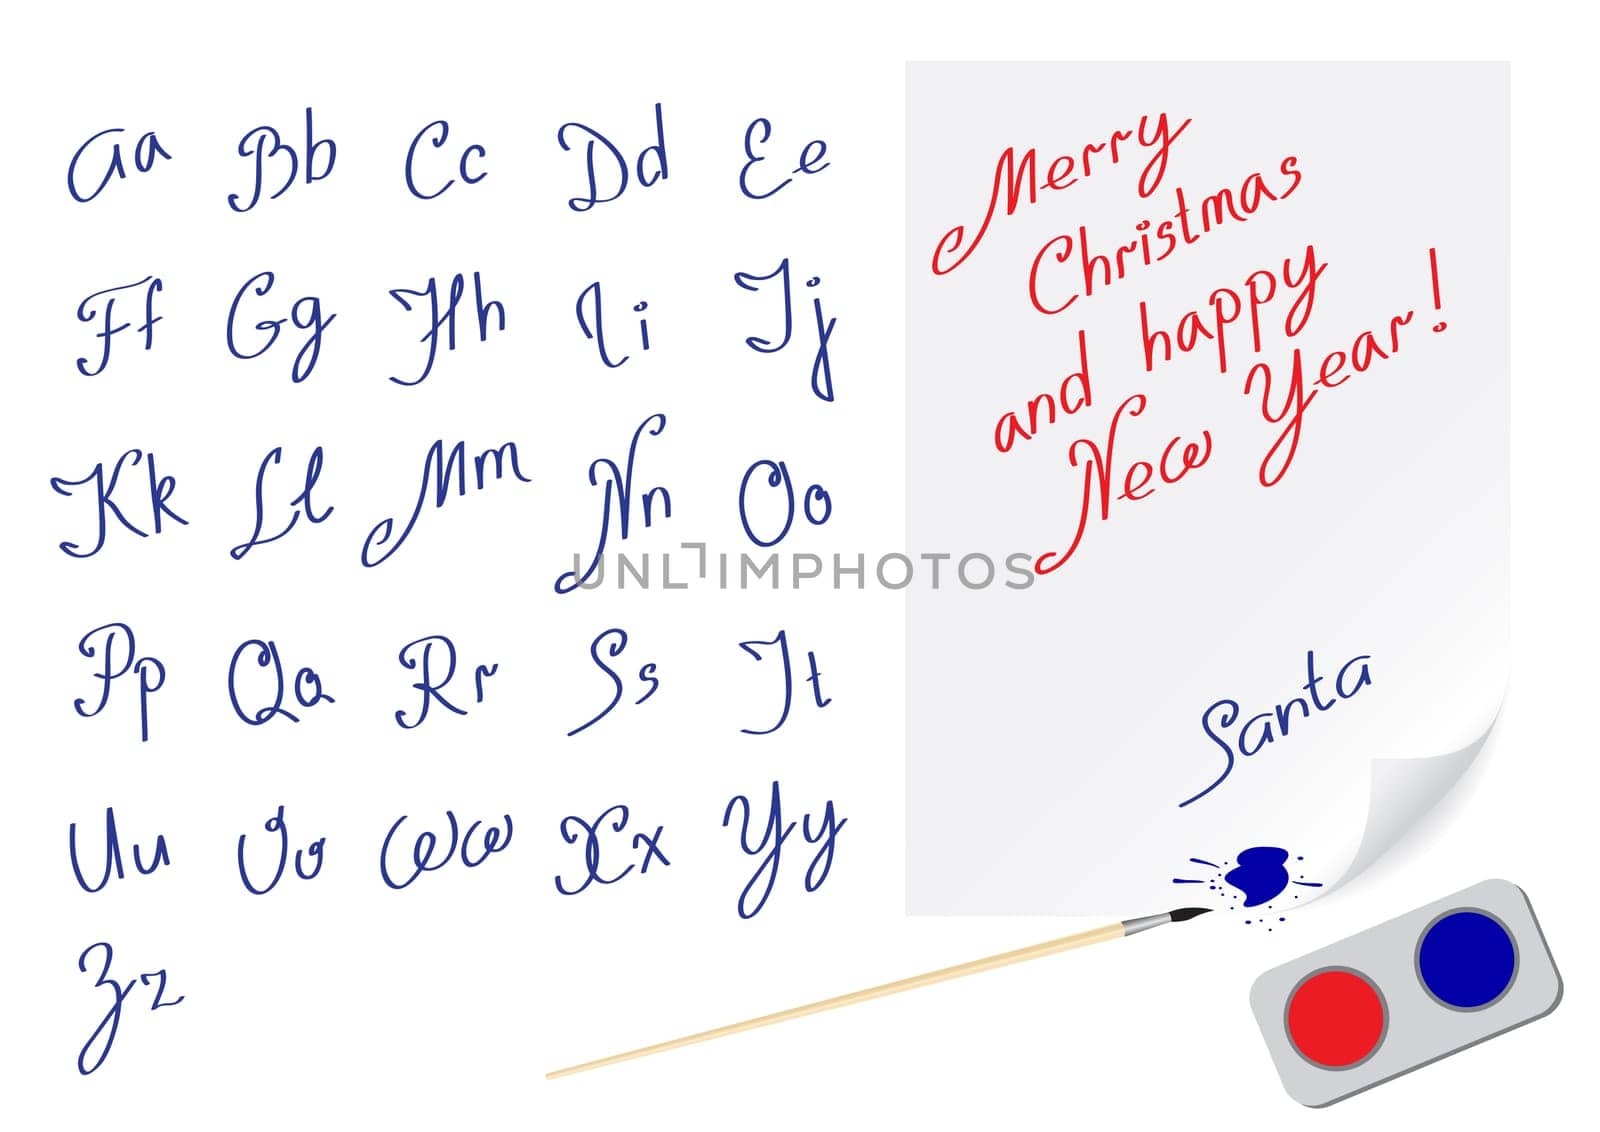 Aa Bb Cc Dd Ee
Ff Gg Hh Ii Jj
Kk Ll Mm Nn Oo
Pp Qq Rr Ss Tt
Uu Vv Ww Xx Yy
Zz
Merry
Christmas
and happy
New Year!
Santa
UNLIMPHOTOS